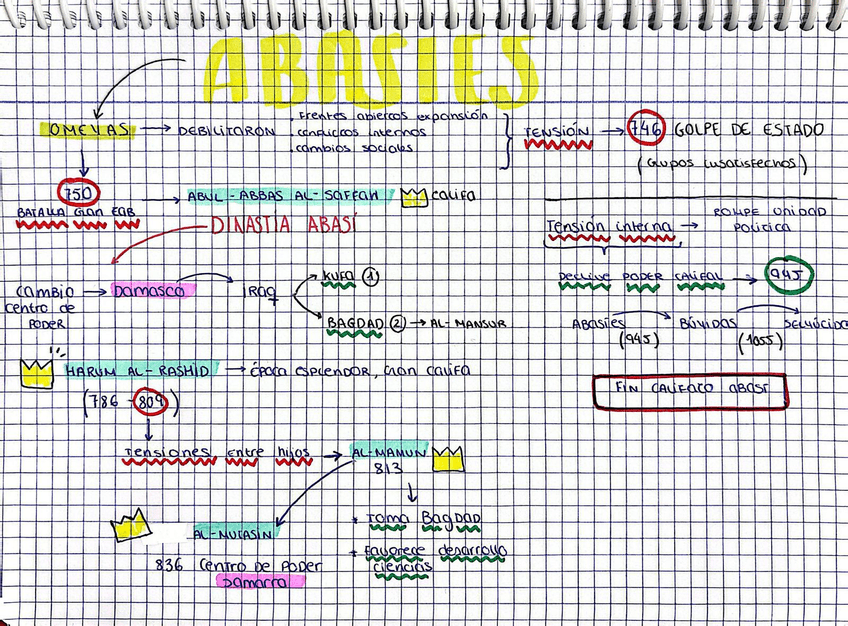 ABASIES
OMEYAS → DEBILITARON
. Frentes abiertos expansión
. conflictos internos
. cambios sociales
TENSIÓN → 746 GOLPE DE ESTADO
(Grupos insatisfechos)
750 → ABUL-ABBAS AL-SAFFAH califa
BATALLA Gran ZAB
DINASTÍA ABASÍ
cambio centro de PODER → Damasco
IRAQ
KUFA ①
BAGDAD ② → AL-MANSUR
HARUM AL-RASHID → época esplendor, Gran califa
(786 - 809)
Tensiones entre hijos → AL-MAMUN
813
* Toma Bagdad
* Favorece desarrollo
ciencias
AL-MUTASIN
836 Centro de PODER
Samarra
Tensión interna → ROMPE UNIDAD
política
Declive PODER CALIFAL → 945
Abasíes Búyidas Selyúcidas
(945) (1055)
FIN CALIFATO ABASÍ